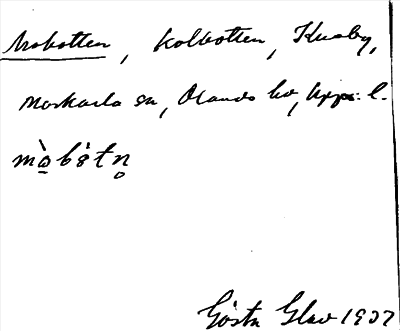 Mobotten, Kolbotten, Kusby,
Morkarla sn, Olands hd, Upps. l.
mò̲bòtn̥
Gösta Glav 1937